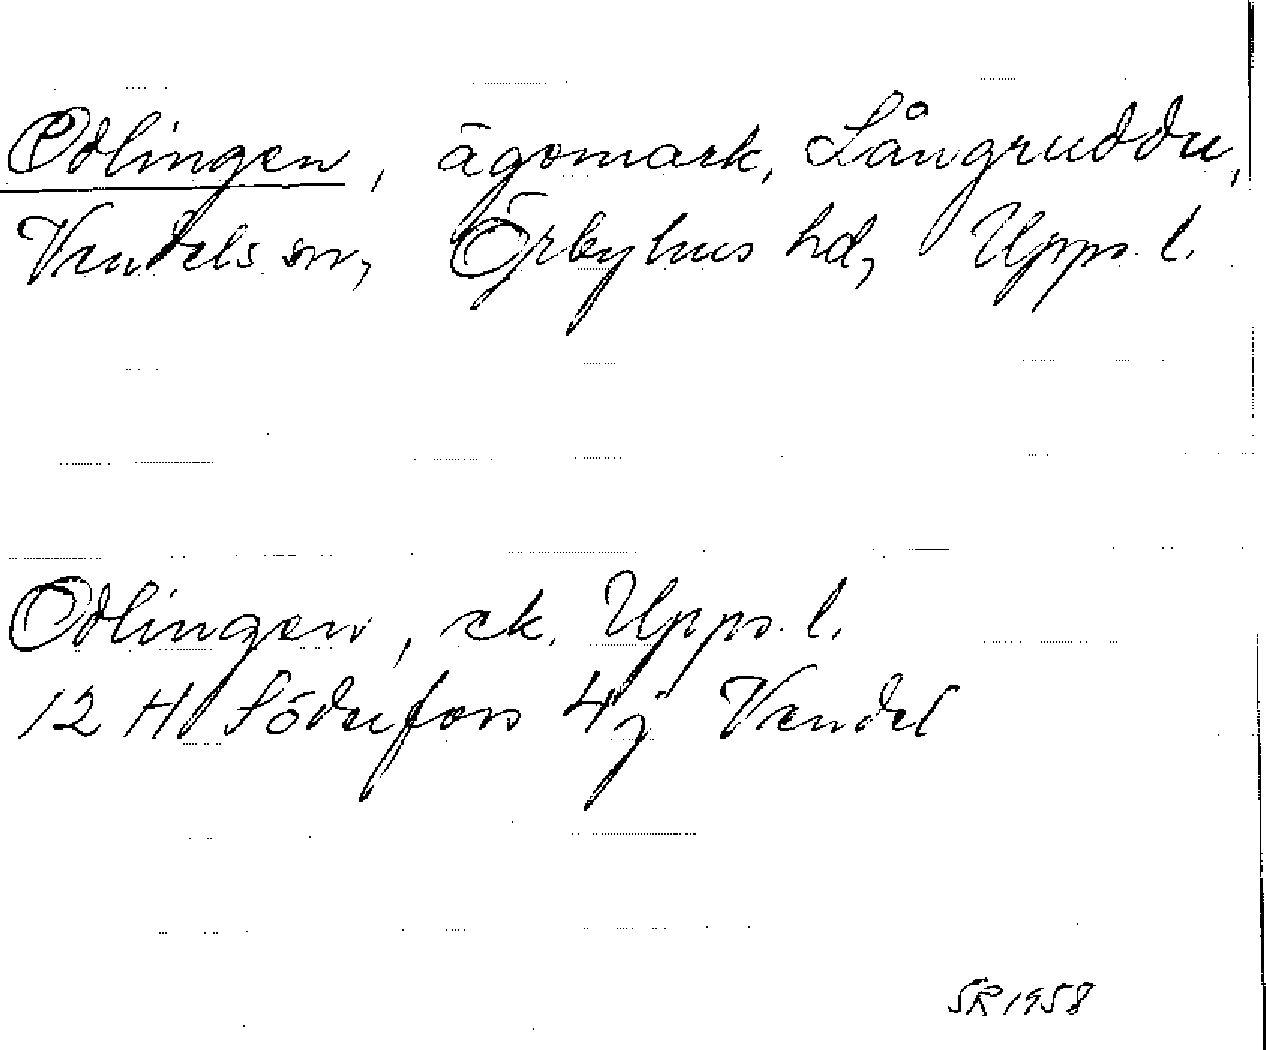 Odlingen, ägomark, Långruddu,
Vendels sn, Örbyhus hd, Upps. l.
Odlingen, ek. Upps. l.
12 H Söderfors 4j Vendel
SR 1958